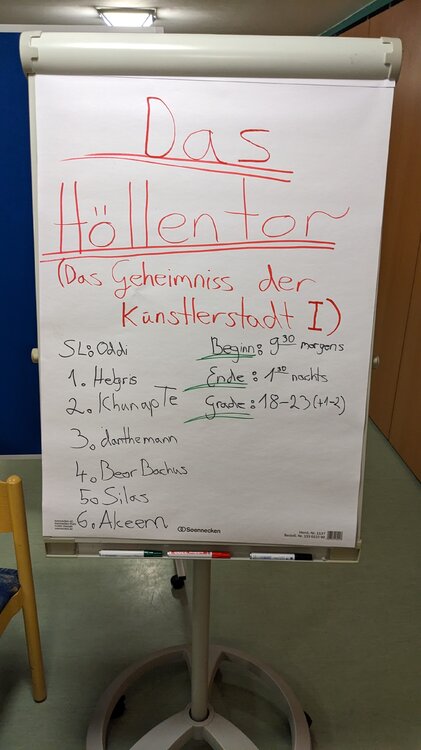 Das
Höllentor
(Das Geheimniss der
Künstlerstadt I)
SL: Oddi
1. Hebris
2. KhunapTe
3. darthemann
4. Beor Bachus
5. Silas
6. Akeem
Beginn: 9³⁰ morgens
Ende: 1³⁰ nachts
Grade: 18-23 (+1-2)
Soennecken